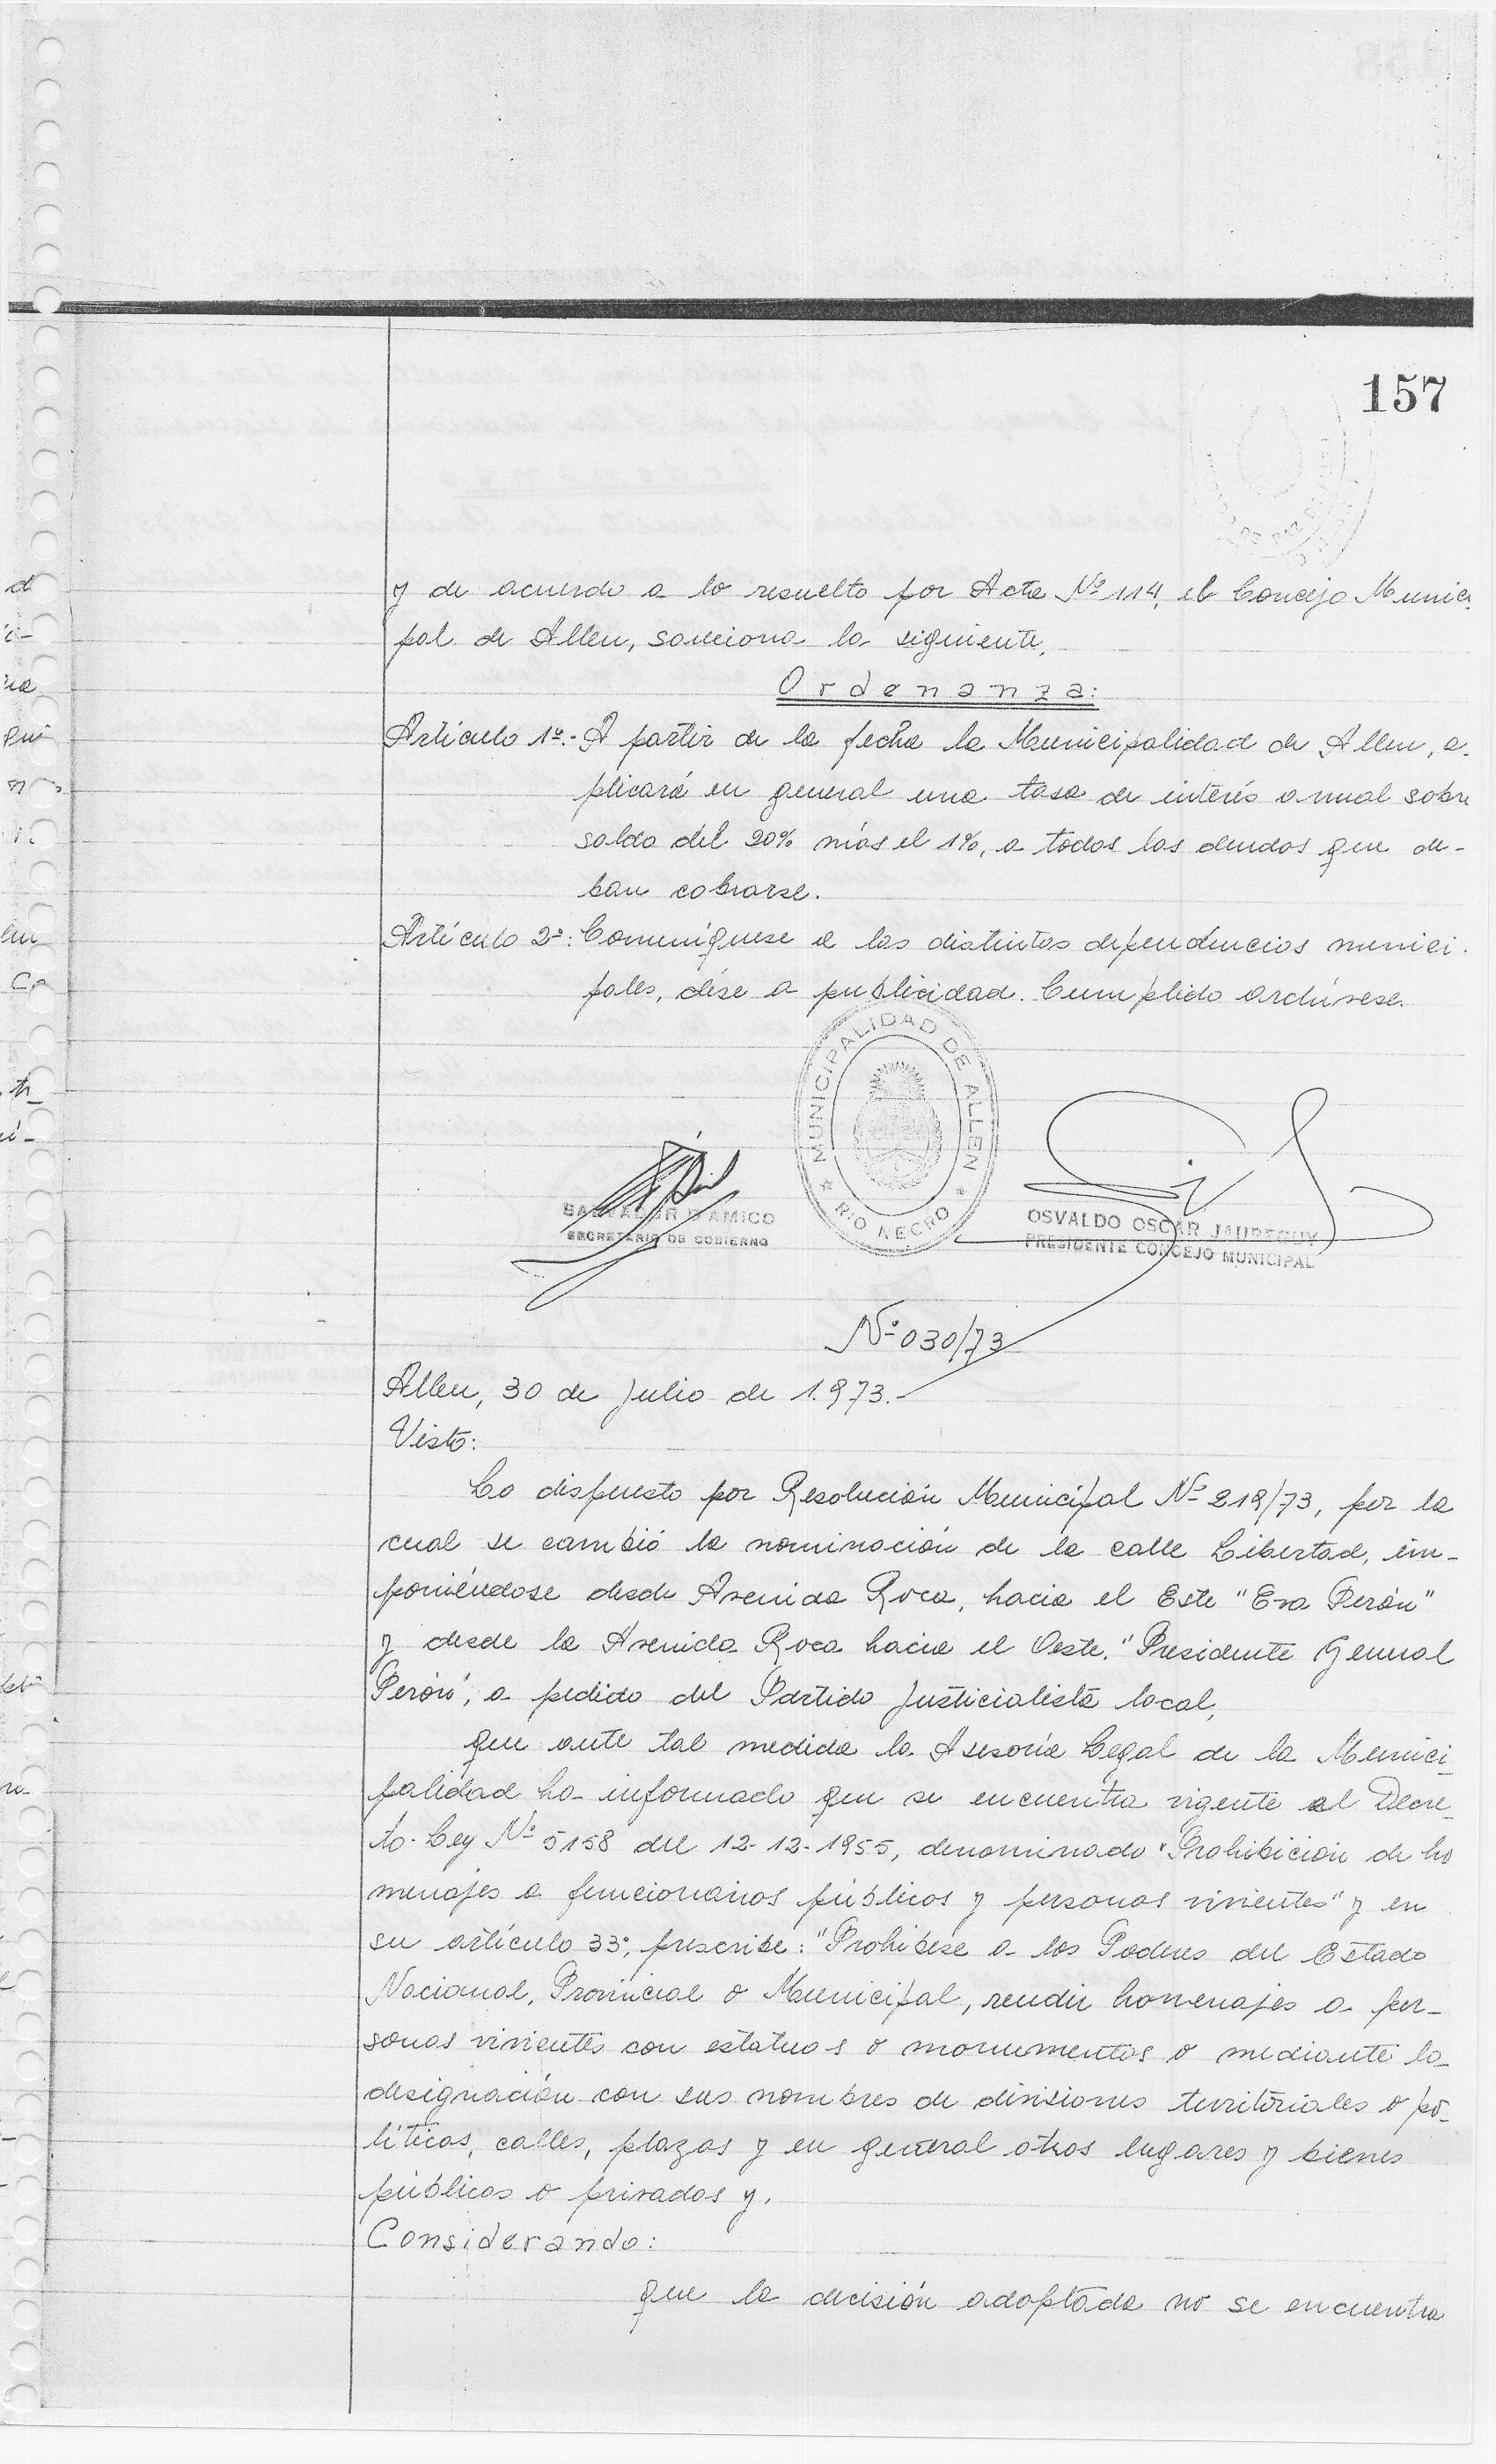 157
y de acuerdo a lo resuelto por Acta Nº 114, el Concejo Munici
pal de Allen, sanciona la siguiente,
Ordenanza:
Artículo 1º.- A partir de la fecha la Municipalidad de Allen, a-
plicará en general una tasa de interés anual sobre
saldo del 20% más el 1%, a todas las deudas que de-
ban cobrarse.
Artículo 2º: Comuníquese a las distintas dependencias munici-
pales, dése a publicidad. Cumplido archívese.
MUNICIPALIDAD DE ALLEN
RIO NEGRO
SALVADOR D'AMICO
SECRETARIO DE GOBIERNO
OSVALDO OSCAR JAUREGUY
PRESIDENTE CONCEJO MUNICIPAL
Nº 030/73
Allen, 30 de Julio de 1.973.-
Visto:
Lo dispuesto por Resolución Municipal Nº 219/73, por la
cual se cambió la nominación de la calle Libertad, im-
poniéndose desde Avenida Roca, hacia el Este "Eva Perón"
y desde la Avenida Roca hacia el Oeste, "Presidente General
Perón", a pedido del Partido Justicialista local,
que ante tal medida la Asesoría Legal de la Munici
palidad ha informado que se encuentra vigente el Decre-
to-Ley Nº 5158 del 12-12-1955, denominado "Prohibición de ho
menajes a funcionarios públicos y personas vivientes" y en
su artículo 33º, prescribe: "Prohíbese a los Poderes del Estado
Nacional, Provincial o Municipal, rendir homenajes a per-
sonas vivientes con estatuas o monumentos o mediante la
designación con sus nombres de divisiones territoriales o po-
líticas, calles, plazas y en general otros lugares y bienes
públicos o privados y,
Considerando:
que la decisión adoptada no se encuentra